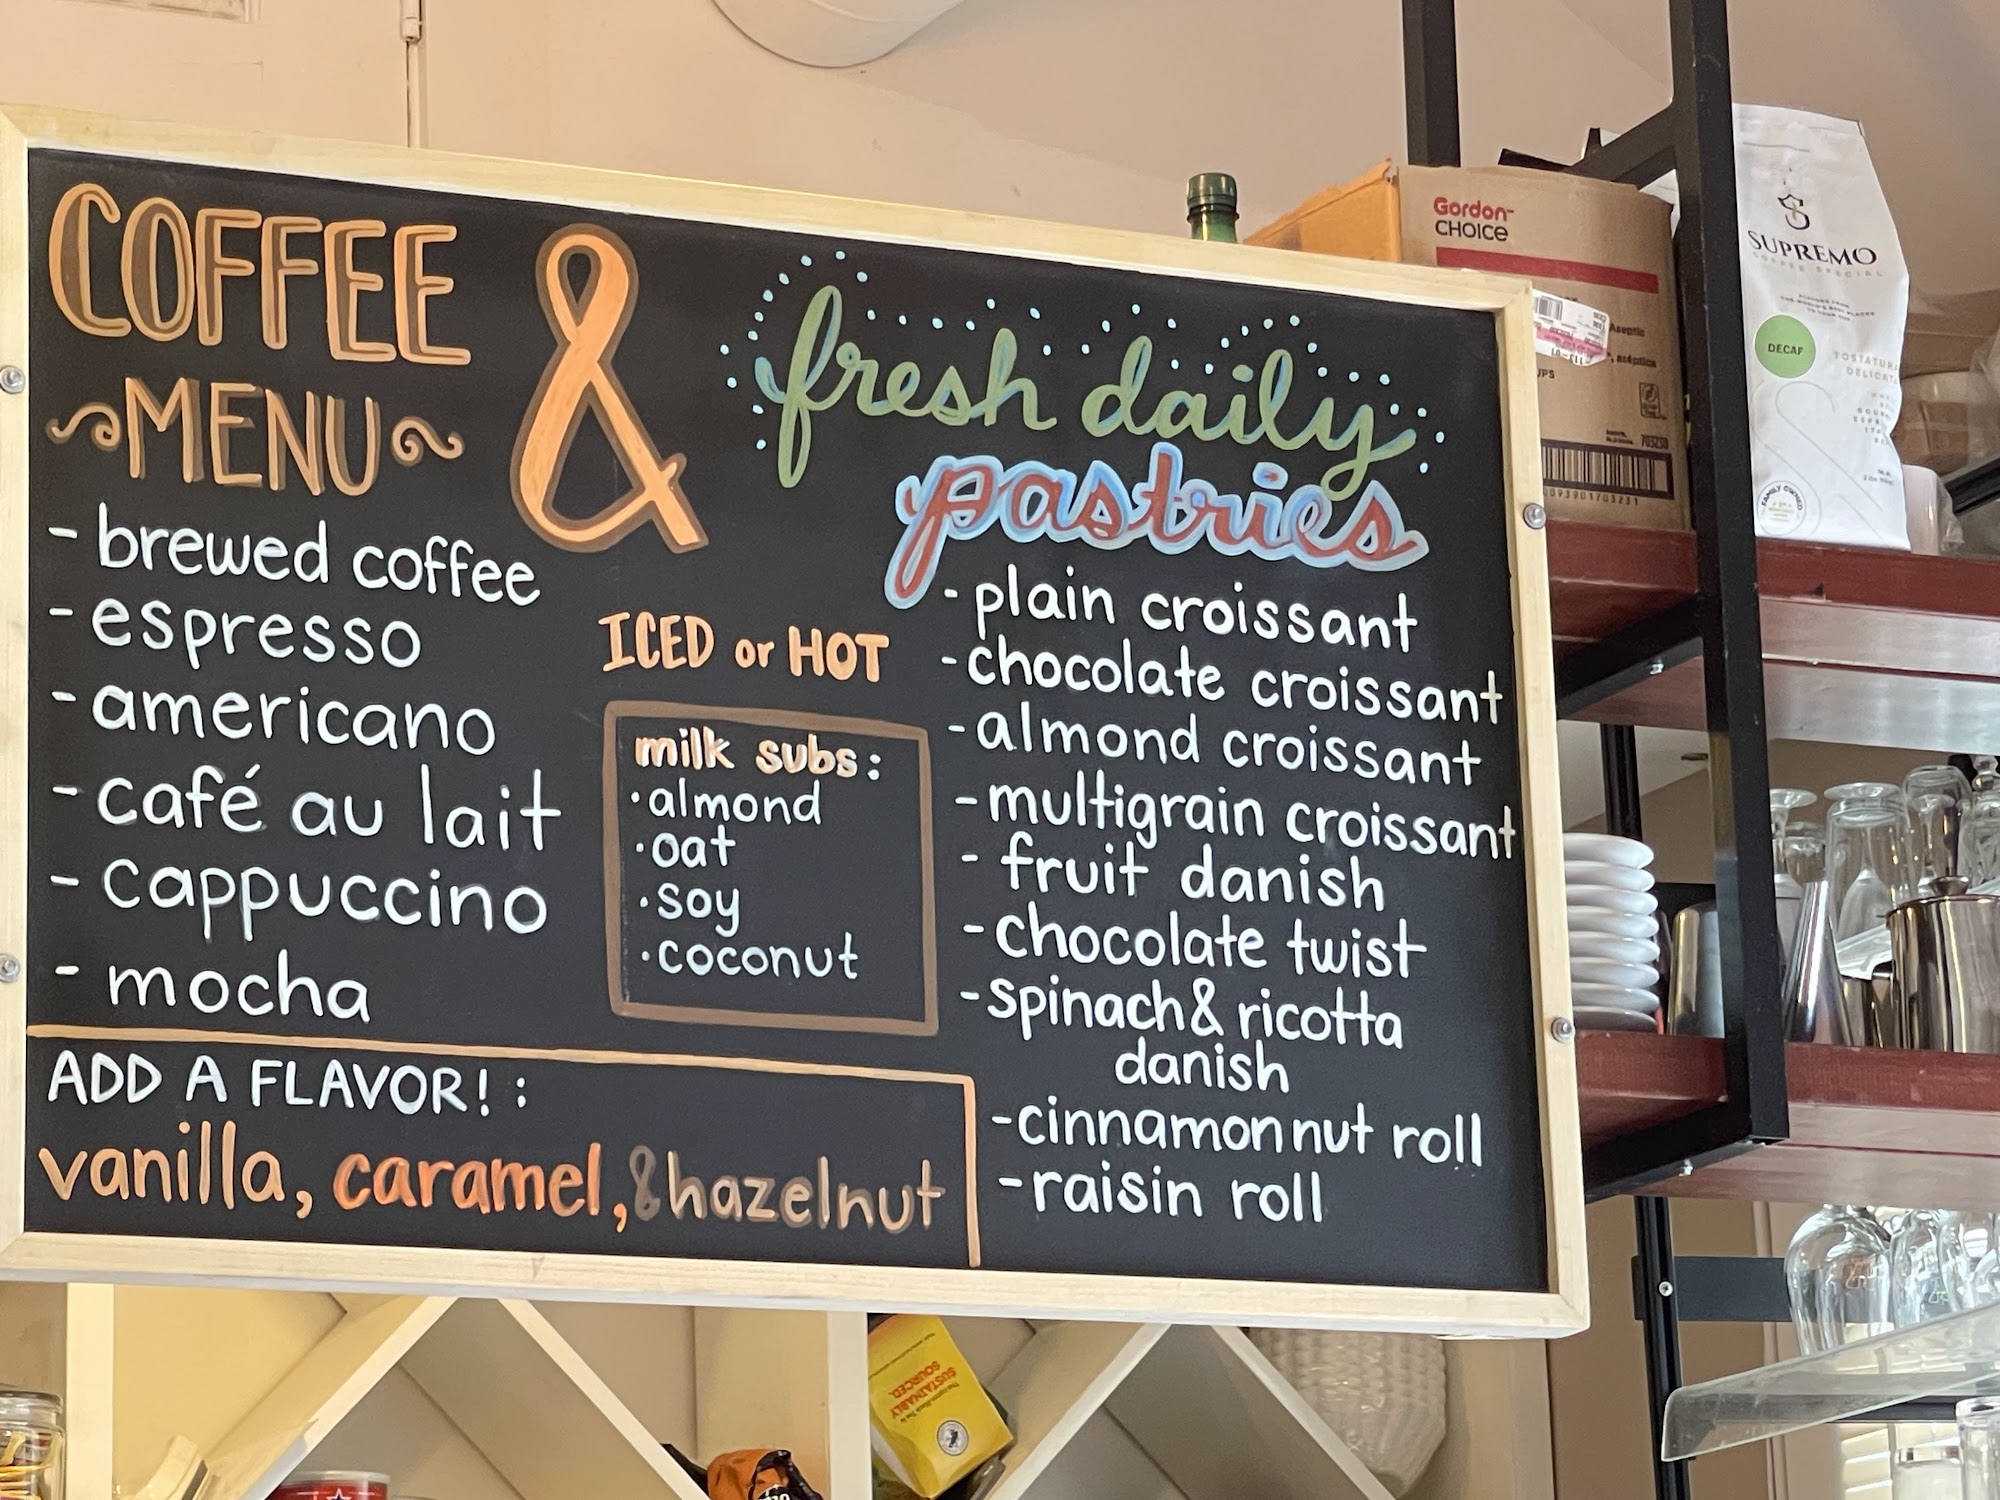 COFFEE
MENU
&
fresh daily
pastries
- brewed coffee
- espresso
- americano
- café au lait
- cappuccino
- mocha
ICED or HOT
milk subs:
·almond
·oat
·soy
·coconut
ADD A FLAVOR! :
vanilla, caramel, & hazelnut
- plain croissant
- chocolate croissant
- almond croissant
- multigrain croissant
- fruit danish
- chocolate twist
- spinach & ricotta
danish
- cinnamon nut roll
- raisin roll
Gordon
CHOICE
Aseptic
703230
SUPREMO
COFFEE SPECIAL
DECAF
FAMILY OWNED
SUSTAINABLY
SOURCED.